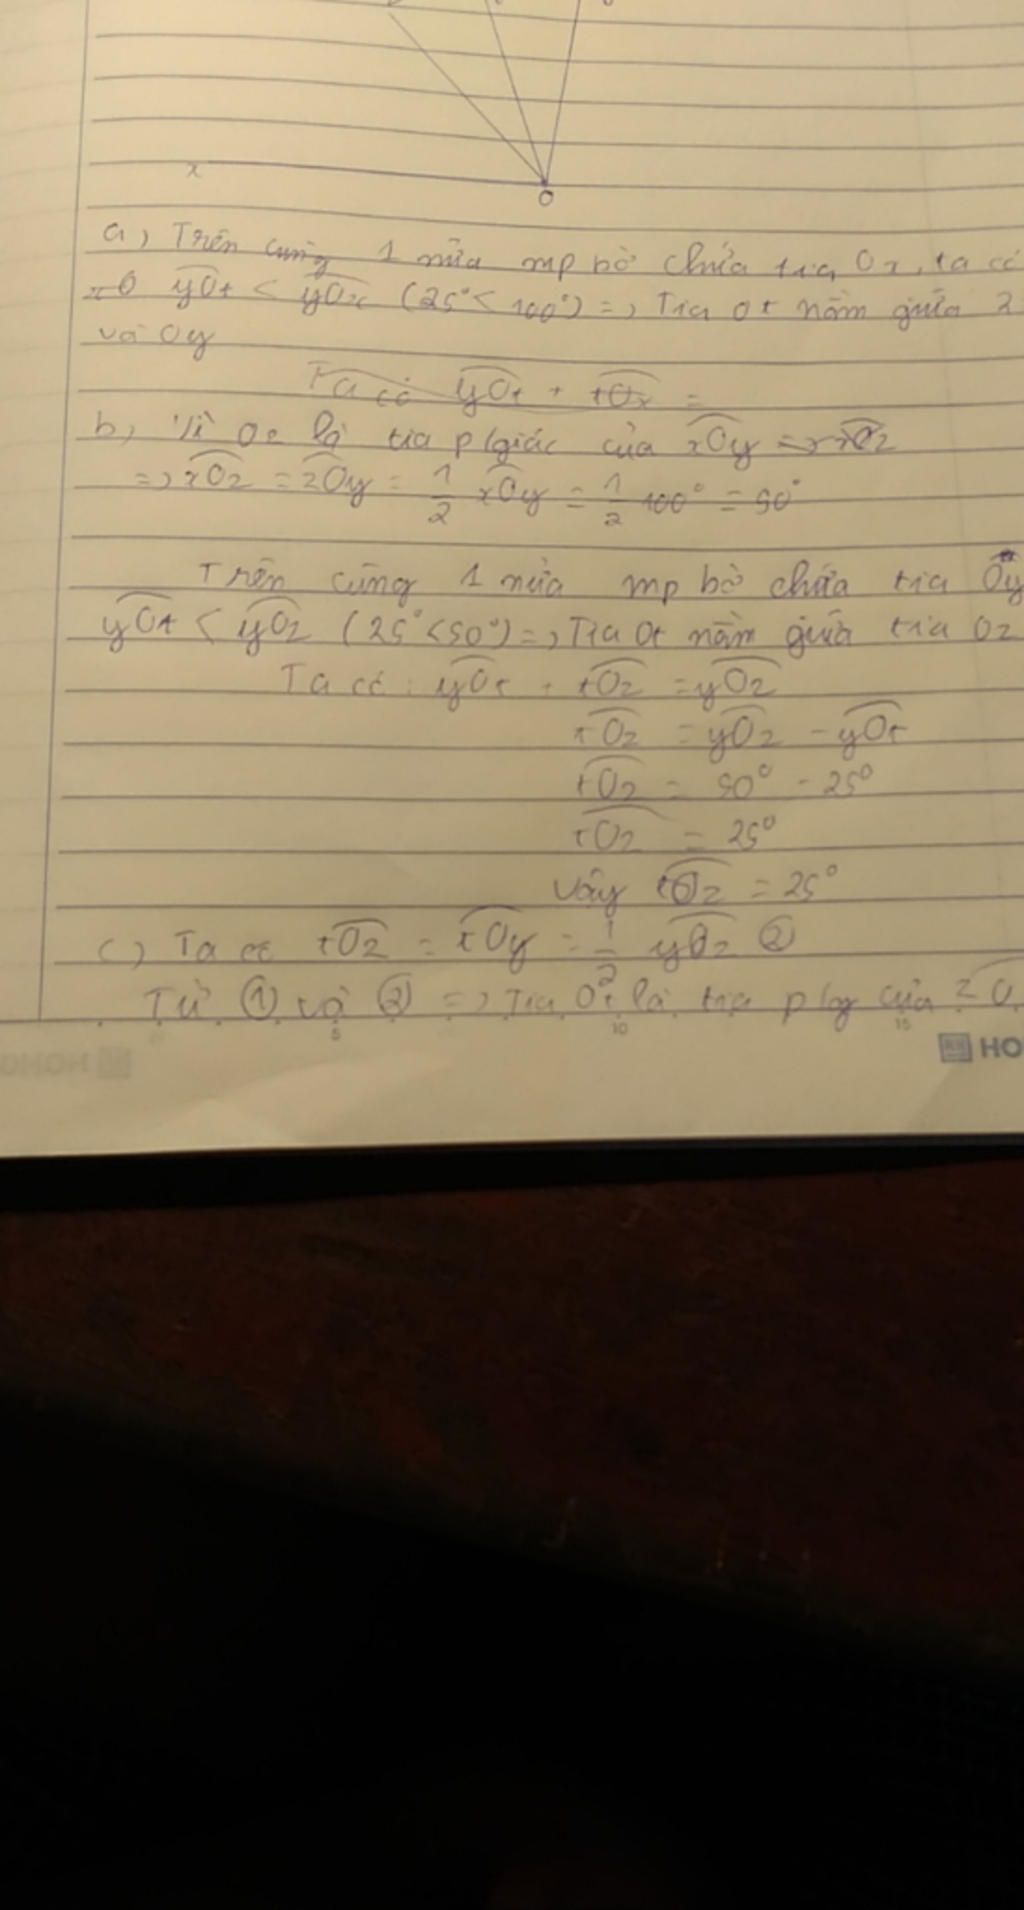 x
O
a) Trên cùng 1 nửa mp bờ chứa tia Ox, ta có
yOt < yOx (25° < 100°) => Tia Ot nằm giữa 2
và Oy
Ta có yOt + tOx =
b) Vì Oz là tia p/giác của xOy => xOz
=> xOz = zOy = 1/2 xOy = 1/2 100° = 50°
Trên cùng 1 nửa mp bờ chứa tia Oy
yOt < yOz (25° < 50°) => Tia Ot nằm giữa tia Oz
Ta có: yOt + tOz = yOz
tOz = yOz - yOt
tOz = 50° - 25°
tOz = 25°
Vậy tOz = 25°
c) Ta có tOz = tOy = 1/2 yOz ②
Từ ① và ② => Tia Ot là tia p/g của zO
5 10 15
HO